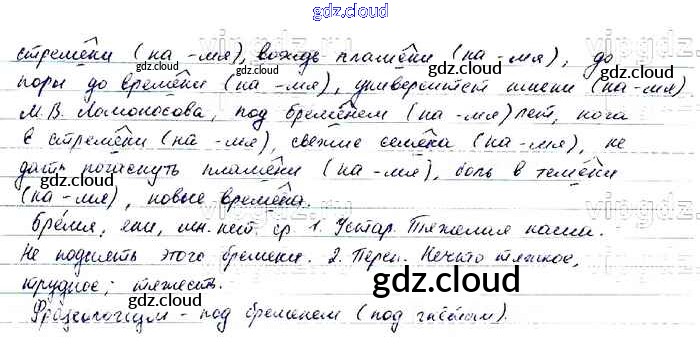 gdz.cloud
стремени (на -мя), вождь племени (на -мя), до
поры до времени (на -мя), университет имени (на -мя)
М.В. Ломоносова, под бременем (на -мя) лет, нога
в стремени (на -мя), свежие семена (на -мя), не
дать погаснуть пламени (на -мя), боль в темени
(на -мя), новые времена.
Бремя, ени, мн. нет. ср. 1. Устар. Тяжелая ноша.
Не поднять этого бремени. 2. Перен. Нечто тяжкое,
трудное; тяжесть.
Фразеологизм - под бременем (под
gdz.cloud
gdz.cloud
gdz.cloud
gdz.cloud
gdz.cloud
gdz.cloud
gdz.cloud
gdz.cloud